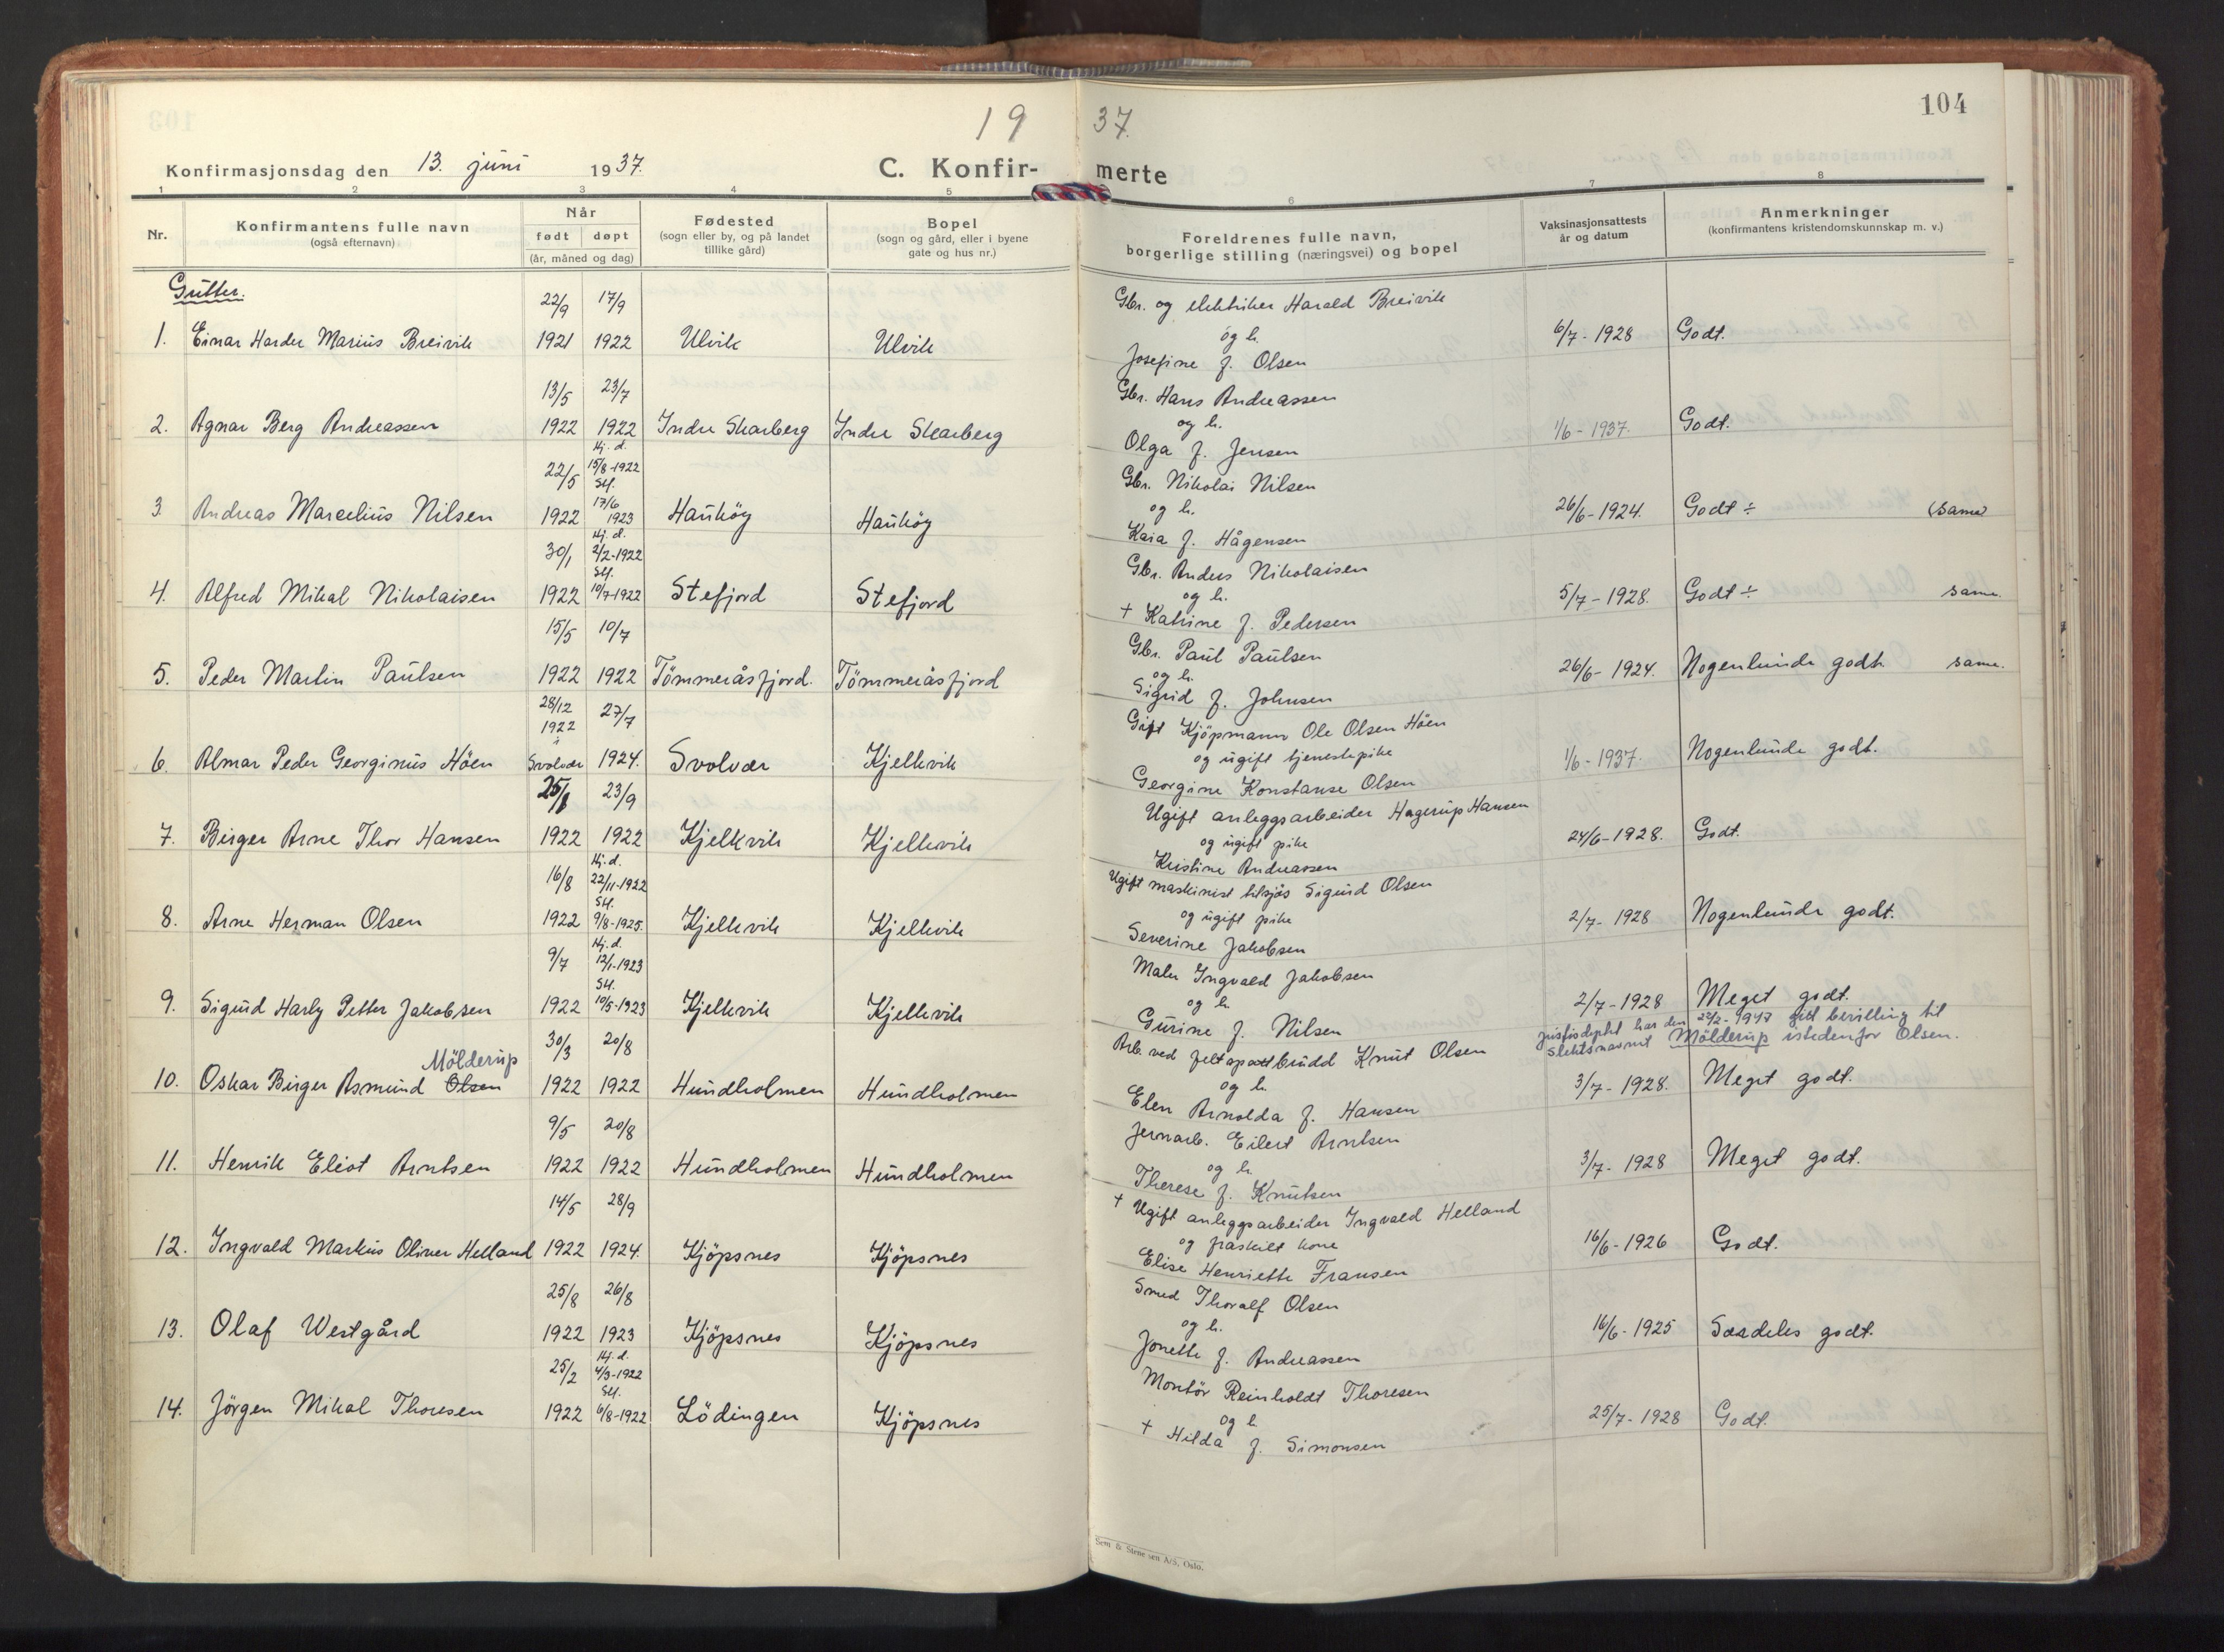 104
19 37.
Konfirmasjonsdag den 13. juni 1937.
C. Konfirmerte
1 2 3 4 5 6 7 8
Nr.
Konfirmantens fulle navn
(også efternavn)
Når
født døpt
(år, måned og dag)
Fødested
(sogn eller by, og på landet
tillike gård)
Bopel
(sogn og gård, eller i byene
gate og hus nr.)
Foreldrenes fulle navn,
borgerlige stilling (næringsvei) og bopel
Vaksinasjonsattests
år og datum
Anmerkninger
(konfirmantens kristendomskunnskap m. v.)
Gutter.
22/9 17/9 Gbr. og elektriker Harald Breivik
1. Einar Harder Marius Breivik 1921 1922 Ulvik Ulvik og h. 6/7-1928 Godt.
Josefine f. Olsen
13/5 23/7 Gbr. Hans Andreassen
2. Agnar Berg Andreassen 1922 1922 Indre Skarberg Indre Skarberg og h. 1/6-1937. Godt.
Olga f. Jensen
Hj. d.
22/5 15/8-1922 Gbr. Nikolai Nilsen
St.
3 Andreas Marcelius Nilsen 1922 17/6 1923 Haukøy Haukøy og h. 26/6-1924. Godt ÷ (same)
Kaia f. Hågensen
Hj. d.
30/1 2/2-1922 Gbr. Anders Nikolaisen
St.
4. Alfred Mikal Nikolaisen 1922 10/7-1922 Stefjord Stefjord og h. 5/7-1928. Godt ÷ same.
+ Katrine f. Pedersen
15/5 10/7 Gbr. Paul Paulsen
5. Peder Martin Paulsen 1922 1922 Tömmeråsfjord. Tömmeråsfjord og h. 26/6-1924. Nogenlunde godt. same.
Sigrid f. Johnsen
28/12 1922 27/7 Gift Kjöpmann Ole Olsen Höen
i
6. Almar Peder Georginus Höen Svolvær 1924. Svolvær Kjellvik og ugift tjenestepike 1/6-1937. Nogenlunde godt.
Georgine Konstanse Olsen
25/8 23/9 Ugift anleggsarbeider Hagerup Hansen
7. Birger Arne Thor Hansen 1922 1922 Kjelkvik Kjelkvik og ugift pike 24/6-1928. Godt.
Kristine Andreassen
Hj. d.
16/8 22/11-1922 Ugift maskinist tilsjös Sigurd Olsen
St.
8. Arne Herman Olsen 1922 9/8-1925. Kjelkvik Kjelkvik og ugift pike 2/7-1928 Nogenlunde godt.
Severine Jakobsen
Hj. d.
9/7 12/1-1923 Maler Ingvald Jakobsen
St.
9. Sigurd Harly Petter Jakobsen 1922 10/5-1923 Kjelkvik Kjelkvik og h 2/7-1928 Meget godt.
Gurine f. Nilsen
Justisdeptet har den 22/2-1947 gitt bevilling til
slektsnavnet Mölderup istedenfor Olsen.
Mölderup
30/3 20/8 Arb. ved feltspatbrudd Knut Olsen
10. Oskar Birger Asmund Olsen 1922 1922 Hundholmen Hundholmen og h. 3/7-1928. Meget godt.
Elen Arnolda f. Hansen
9/5 20/8 Jernarb. Eilert Arntsen
11. Henrik Eliot Arntsen 1922 1922 Hundholmen Hundholmen og h. 3/7-1928 Meget godt.
Therese f. Knutsen
14/5 28/9 + Ugift anleggsarbeider Ingvald Helland
12. Ingvald Markus Oliver Helland 1922 1924. Kjöpsnes Kjöpsnes og fraskilt kone 16/6-1926 Godt.
Elise Henriette Fransen
25/8 26/8 Smed Thoralf Olsen
13. Olaf Westgård 1922 1923 Kjöpsnes Kjöpsnes og h. 16/6-1925 Særdeles godt.
Jonette f. Andreassen
Hj. d.
25/2 4/3-1922 Montör Reinholdt Thoresen
St.
14. Jörgen Mikal Thoresen 1922 6/8-1922 Lödingen Kjöpsnes og h 25/7-1928 Godt.
+ Hilda f. Simonsen
Sem & Stenersen A/S, Oslo.